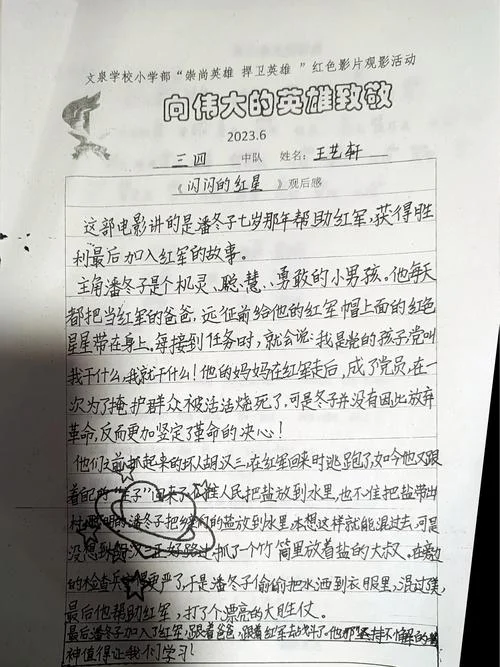 文泉学校小学部“崇尚英雄 捍卫英雄 ”红色影片观影活动
向伟大的英雄致敬
2023.6
三四 中队 姓名：王艺轩
《闪闪的红星》观后感
这部电影讲的是潘冬子七岁那年帮助红军，获得胜
利最后加入红军的故事。
主角潘冬子是个机灵、聪、慧、勇敢的小男孩。他每天
都把当红军的爸爸，远征前给他的红军帽上面的红色
星星带在身上。每接到任务时，就会说：我是党的孩子党叫
我干什么，我就干什么！他的妈妈在红军走后，成了党员，在一
次为了掩护群众被活活烧死了，可是冬子并没有因此放弃
革命，反而更加坚定了革命的决心！
他们之前抓起来的坏人胡汉三，在红军回来时逃跑了，如今他又跟
着 回来了 人民把盐放到水里，也不准把盐带出
村 的潘冬子把乡亲们的盐放到水里，本想这样就能混过去，可是
没想到胡汉三正好路过抓了一个竹筒里放着盐的大叔。在旁边
的检查兵 更严了，于是潘冬子偷偷把水洒到衣服里，混过了
最后他帮助红军，打了个漂亮的大胜仗。
最后潘冬子加入了红军，跟着爸爸，跟着红军去战斗了。他那坚持不懈的精
神值得让我们学习！